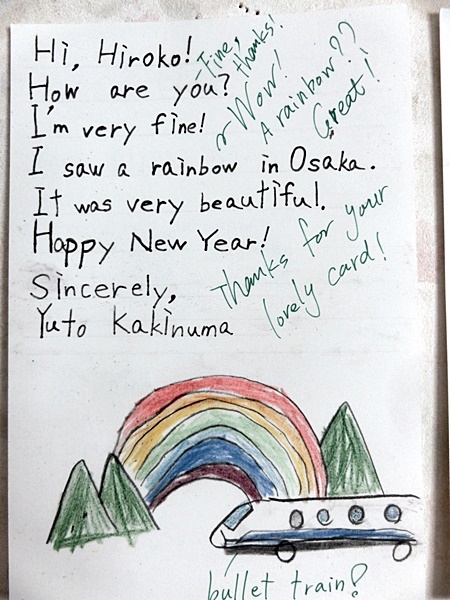 Hi, Hiroko!
How are you?
I'm very fine!
I saw a rainbow in Osaka.
It was very beautiful.
Happy New Year!
Sincerely,
Yuto Kakinuma
Fine, thanks!
Wow!
A rainbow??
Great!
Thanks for your
lovely card!
bullet train?